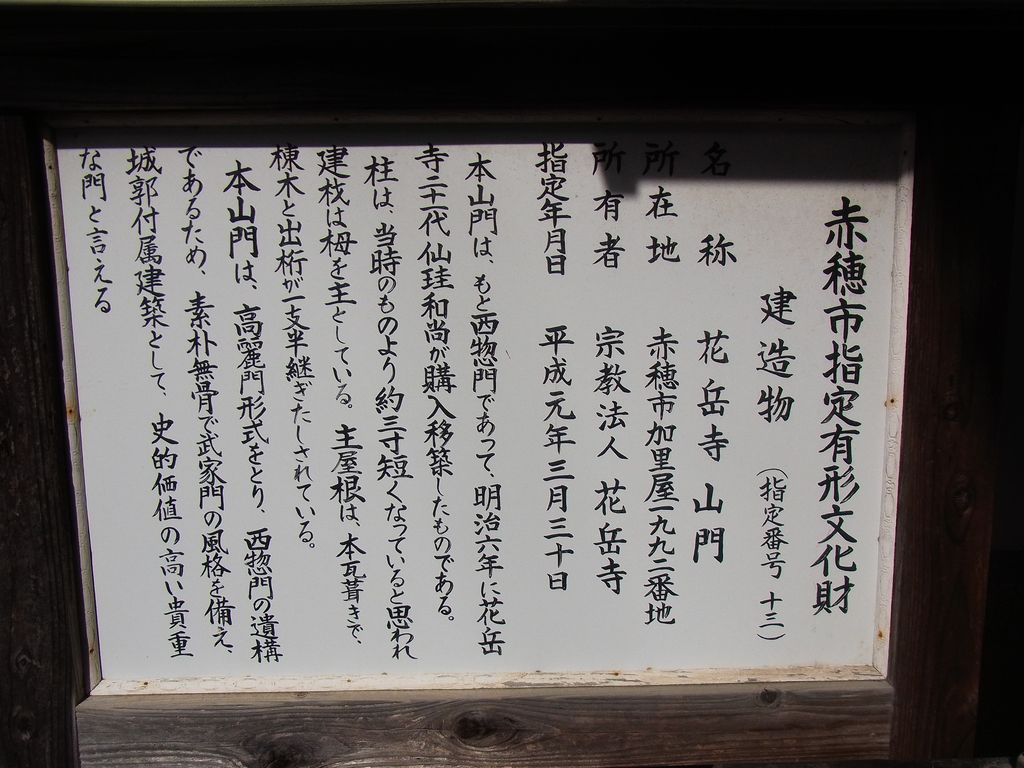 赤穂市指定有形文化財
建造物 （指定番号 十三）
名称 花岳寺 山門
所在地 赤穂市加里屋一九九二番地
所有者 宗教法人 花岳寺
指定年月日 平成元年三月三十日
本山門は、もと西惣門であって、明治六年に花岳
寺二十一代仙珪和尚が購入移築したものである。
柱は、当時のものより約三寸短くなっていると思われ
建材は栂を主としている。主屋根は、本瓦葺きで、
棟木と出桁が一支半継ぎたしされている。
本山門は、高麗門形式をとり、西惣門の遺構
であるため、素朴無骨で武家門の風格を備え、
城郭付属建築として、史的価値の高い貴重
な門と言える